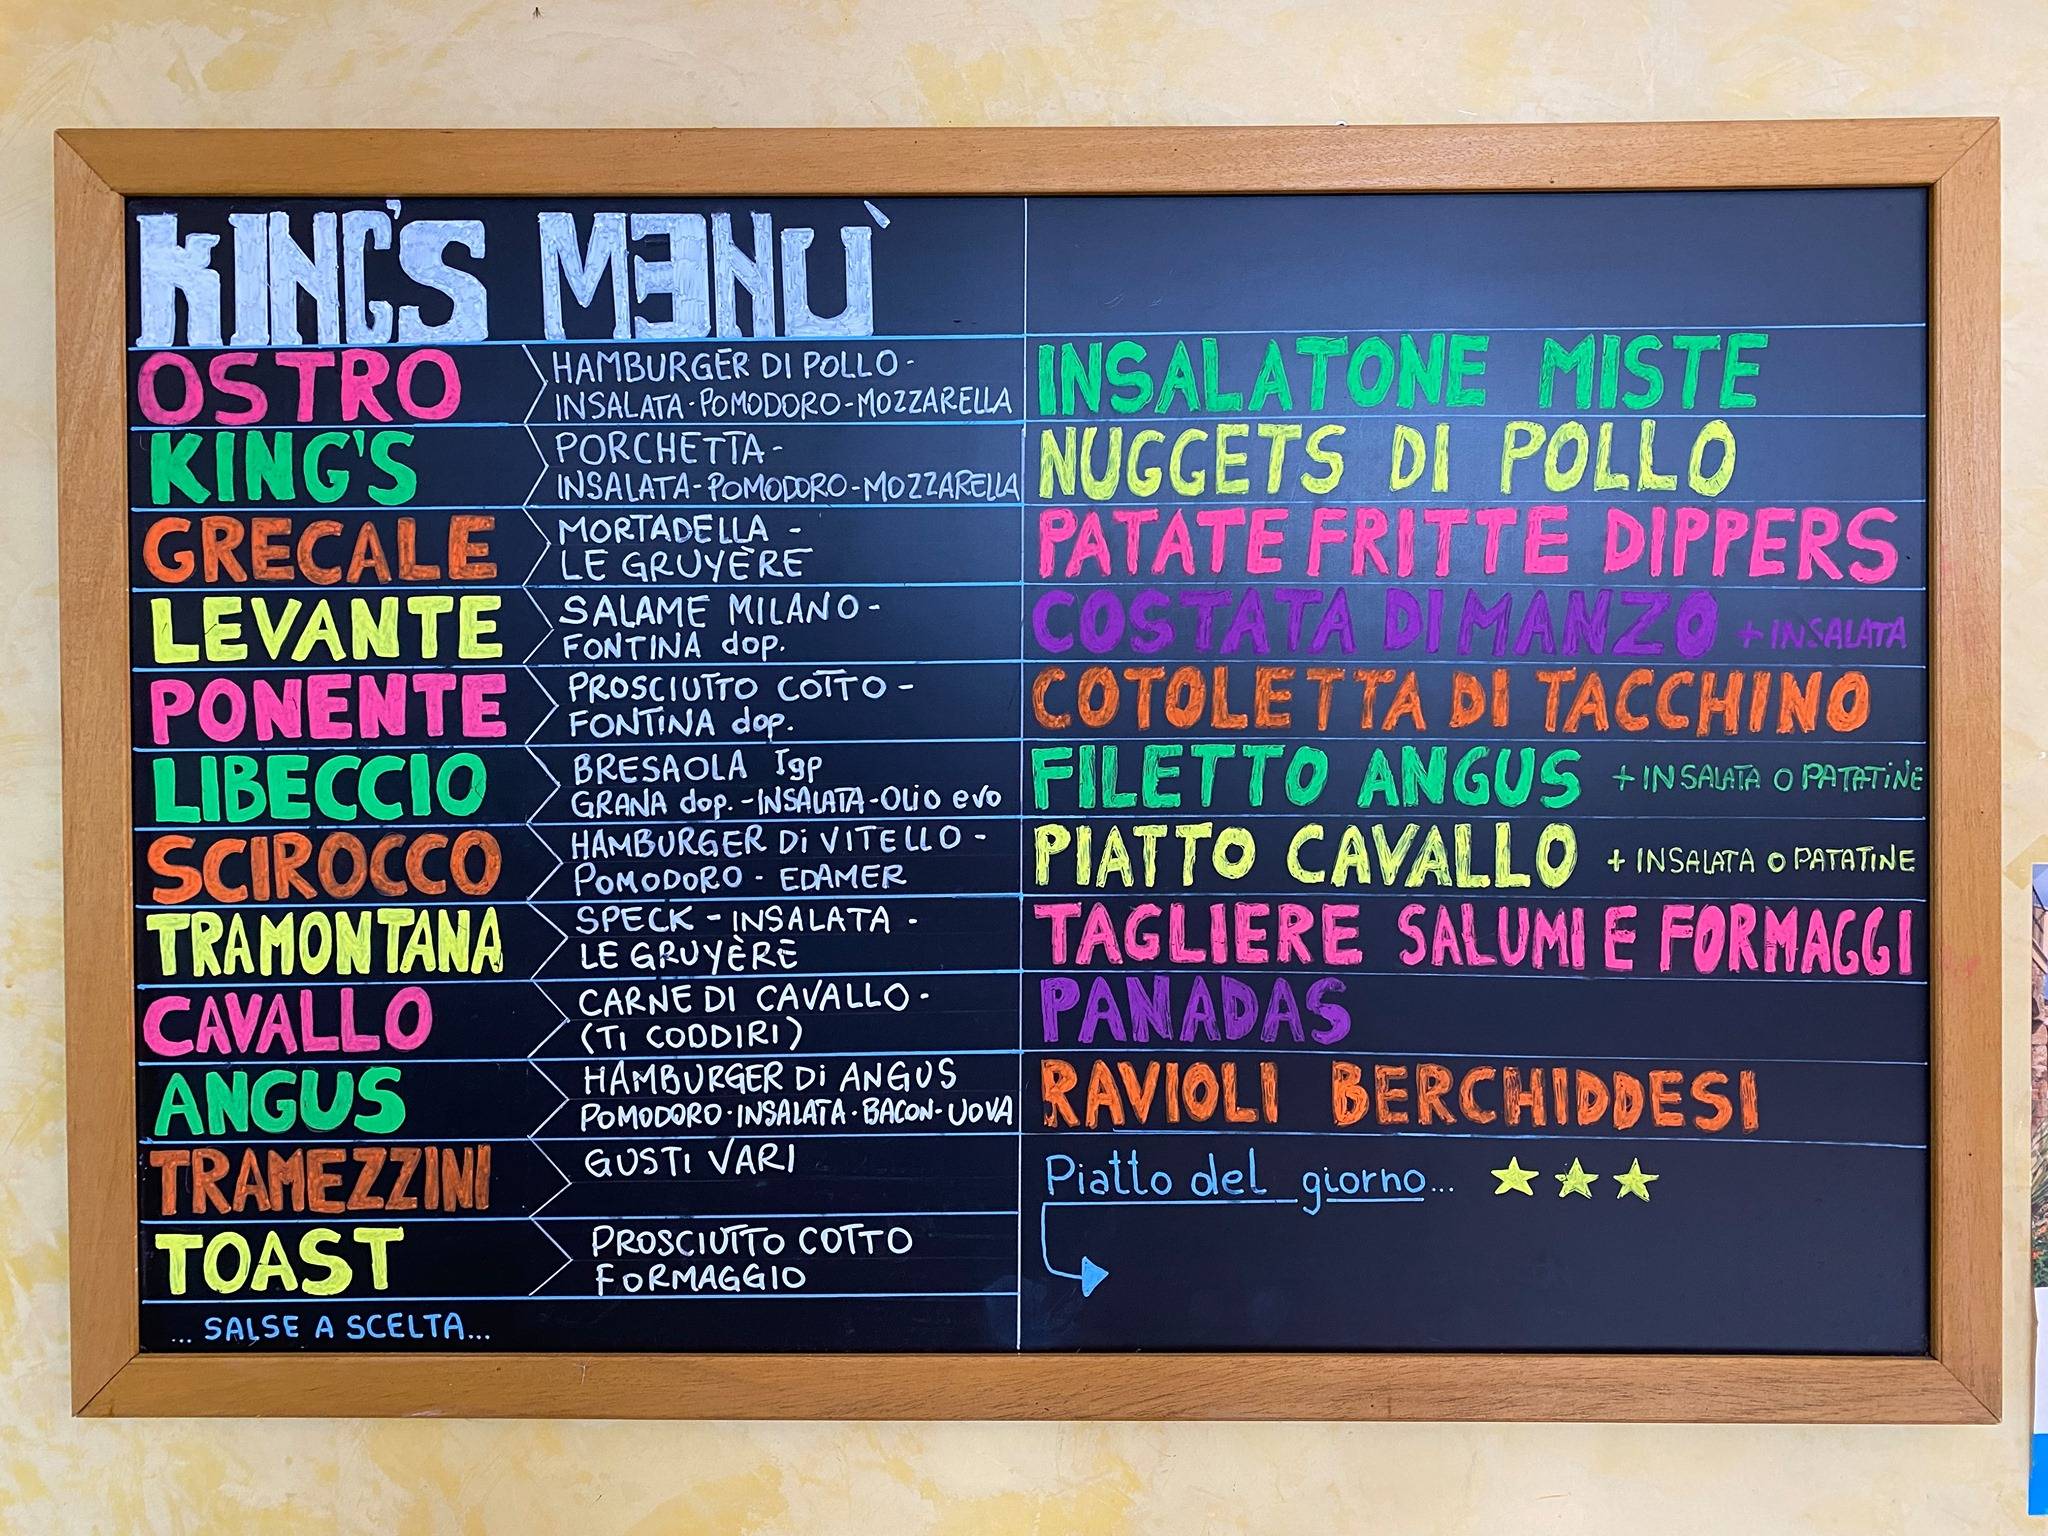 KING'S MENU'
OSTRO
HAMBURGER DI POLLO-
INSALATA-POMODORO-MOZZARELLA
KING'S
PORCHETTA-
INSALATA-POMODORO-MOZZARELLA
GRECALE
MORTADELLA -
LE GRUYÈRE
LEVANTE
SALAME MILANO-
FONTINA dop.
PONENTE
PROSCIUTTO COTTO -
FONTINA dop.
LIBECCIO
BRESAOLA Igp
GRANA dop.-INSALATA-Olio evo
SCIROCCO
HAMBURGER Di VITELLO -
POMODORO - EDAMER
TRAMONTANA
SPECK - INSALATA -
LE GRUYÈRE
CAVALLO
CARNE DI CAVALLO-
(TI CODDIRI)
ANGUS
HAMBURGER Di ANGUS
POMODORO-INSALATA-BACON-UOVA
TRAMEZZINI
GUSTI VARI
TOAST
PROSCIUTTO COTTO
FORMAGGIO
... SALSE A SCELTA...
INSALATONE MISTE
NUGGETS DI POLLO
PATATE FRITTE DIPPERS
COSTATA DI MANZO + INSALATA
COTOLETTA DI TACCHINO
FILETTO ANGUS + INSALATA O PATATiNE
PIATTO CAVALLO + INSALATA O PATATiNE
TAGLIERE SALUMI E FORMAGGI
PANADAS
RAVIOLI BERCHIDDESI
Piatto del giorno...